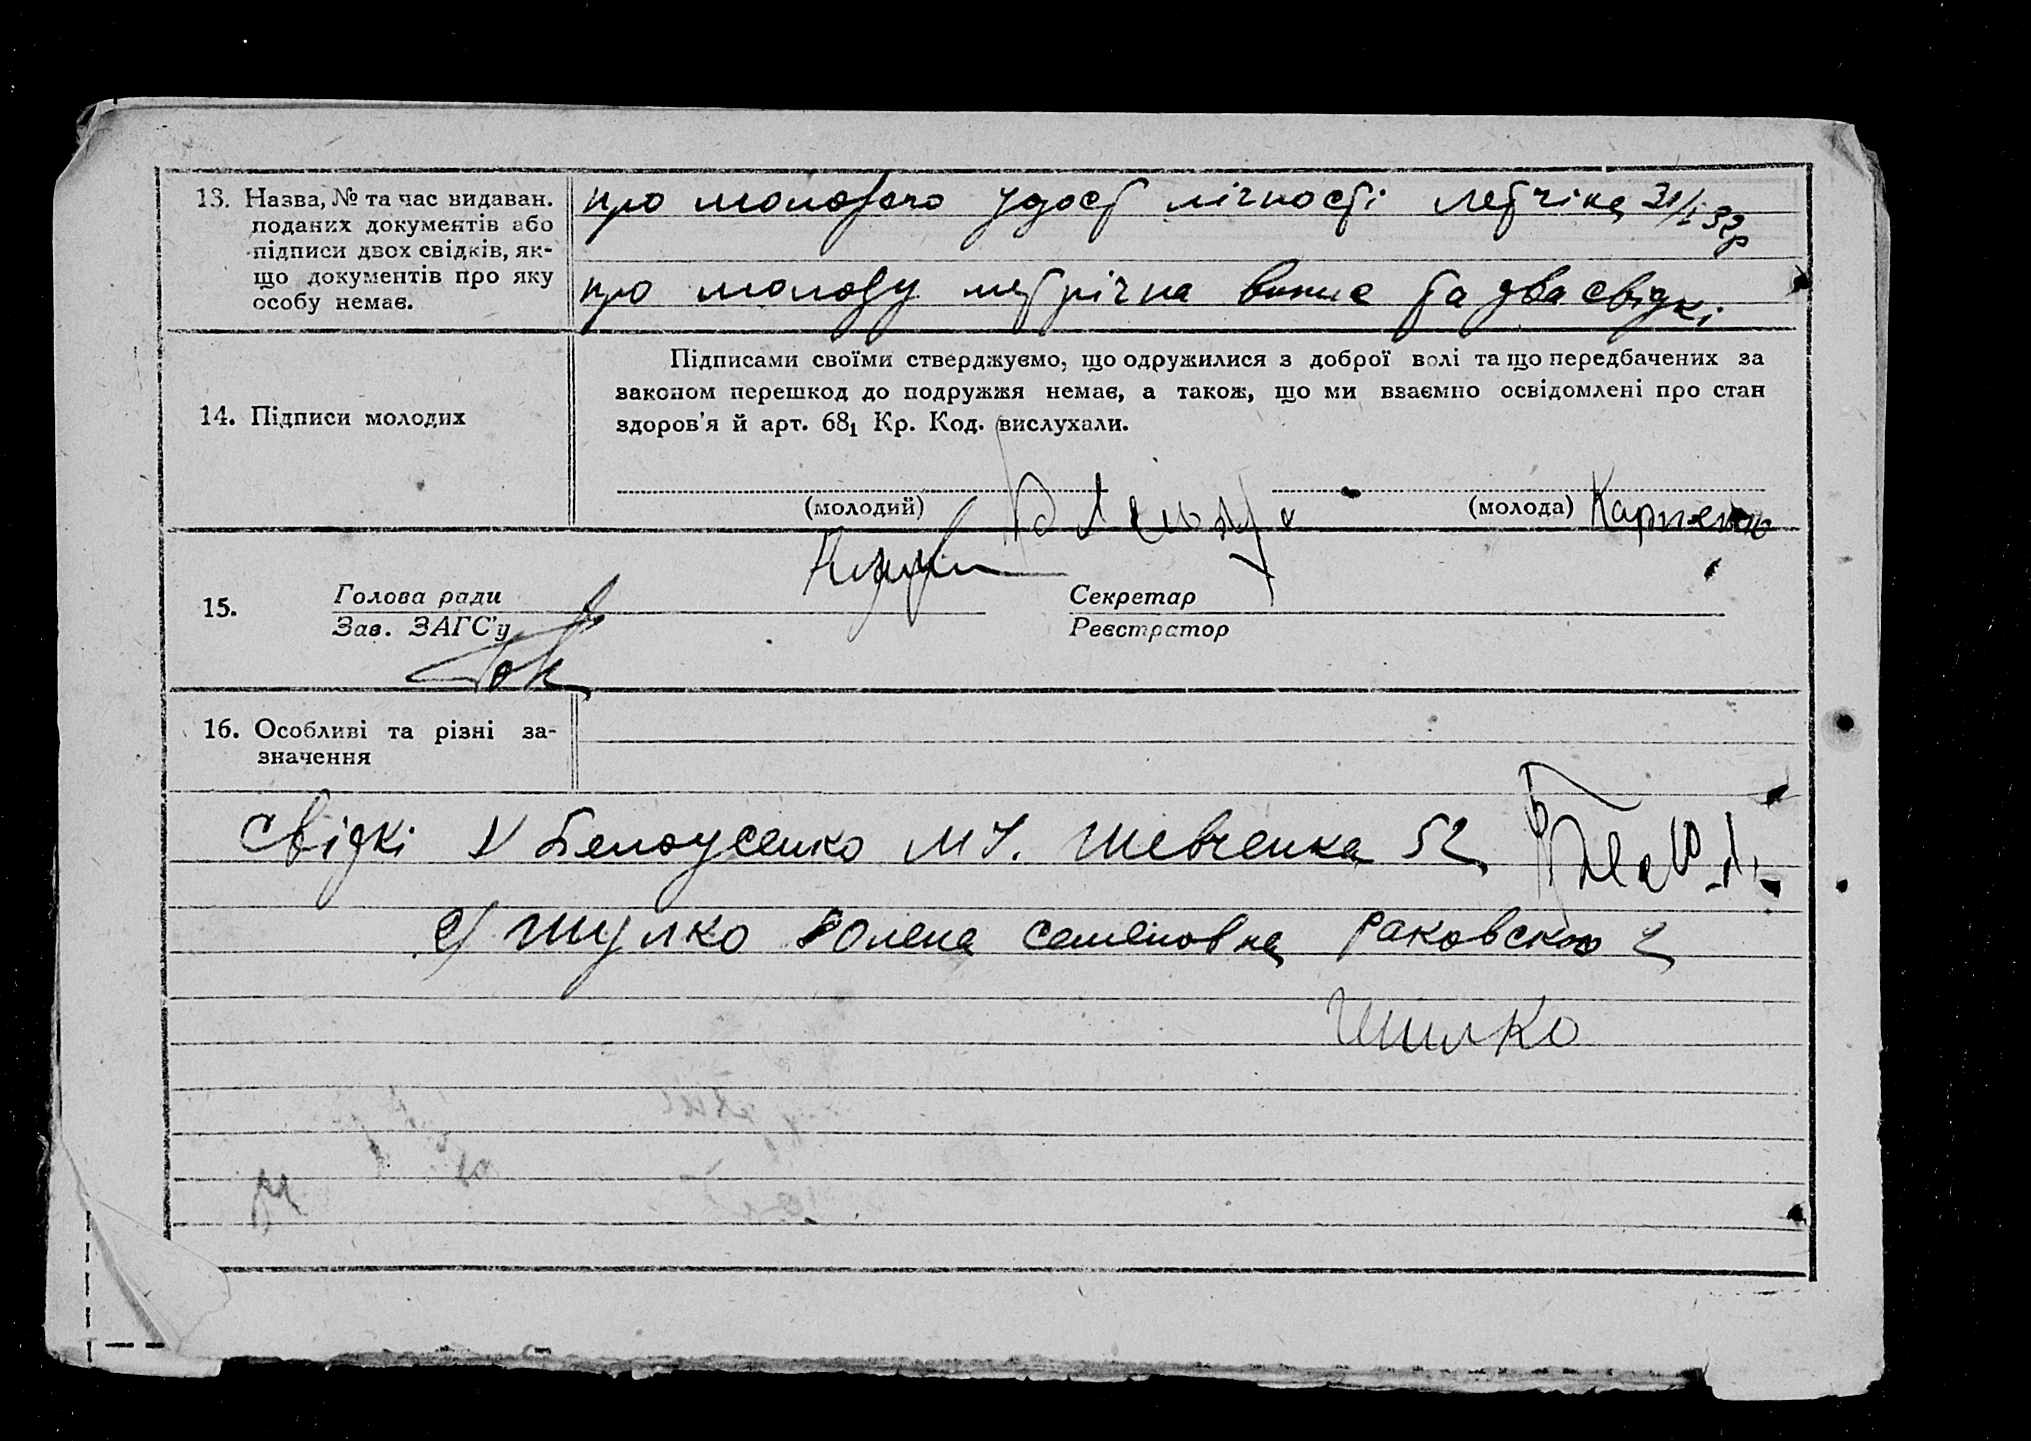 13. Назва, № та час видаван.
поданих документів або
підписи двох свідків, як-
що документів про яку
особу немає.
про молодого удост лічності летчіка 31/I 32р
про молоду метрічна випис та два свідкі
14. Підписи молодих
Підписами своїми стверджуємо, що одружилися з доброї волі та що передбачених за
законом перешкод до подружжя немає, а також, що ми взаємно освідомлені про стан
здоров'я й арт. 68₁ Кр. Код. вислухали.
(молодий)
(молода) Карпенко
15. Голова ради
Зав. ЗАГС'у
Секретар
Реєстратор
16. Особливі та різні за-
значення
Свідкі 1/ Белоусенко М У. Шевченка 52
2/ Шулко Олена Семеновна Раковского 2
Шилко